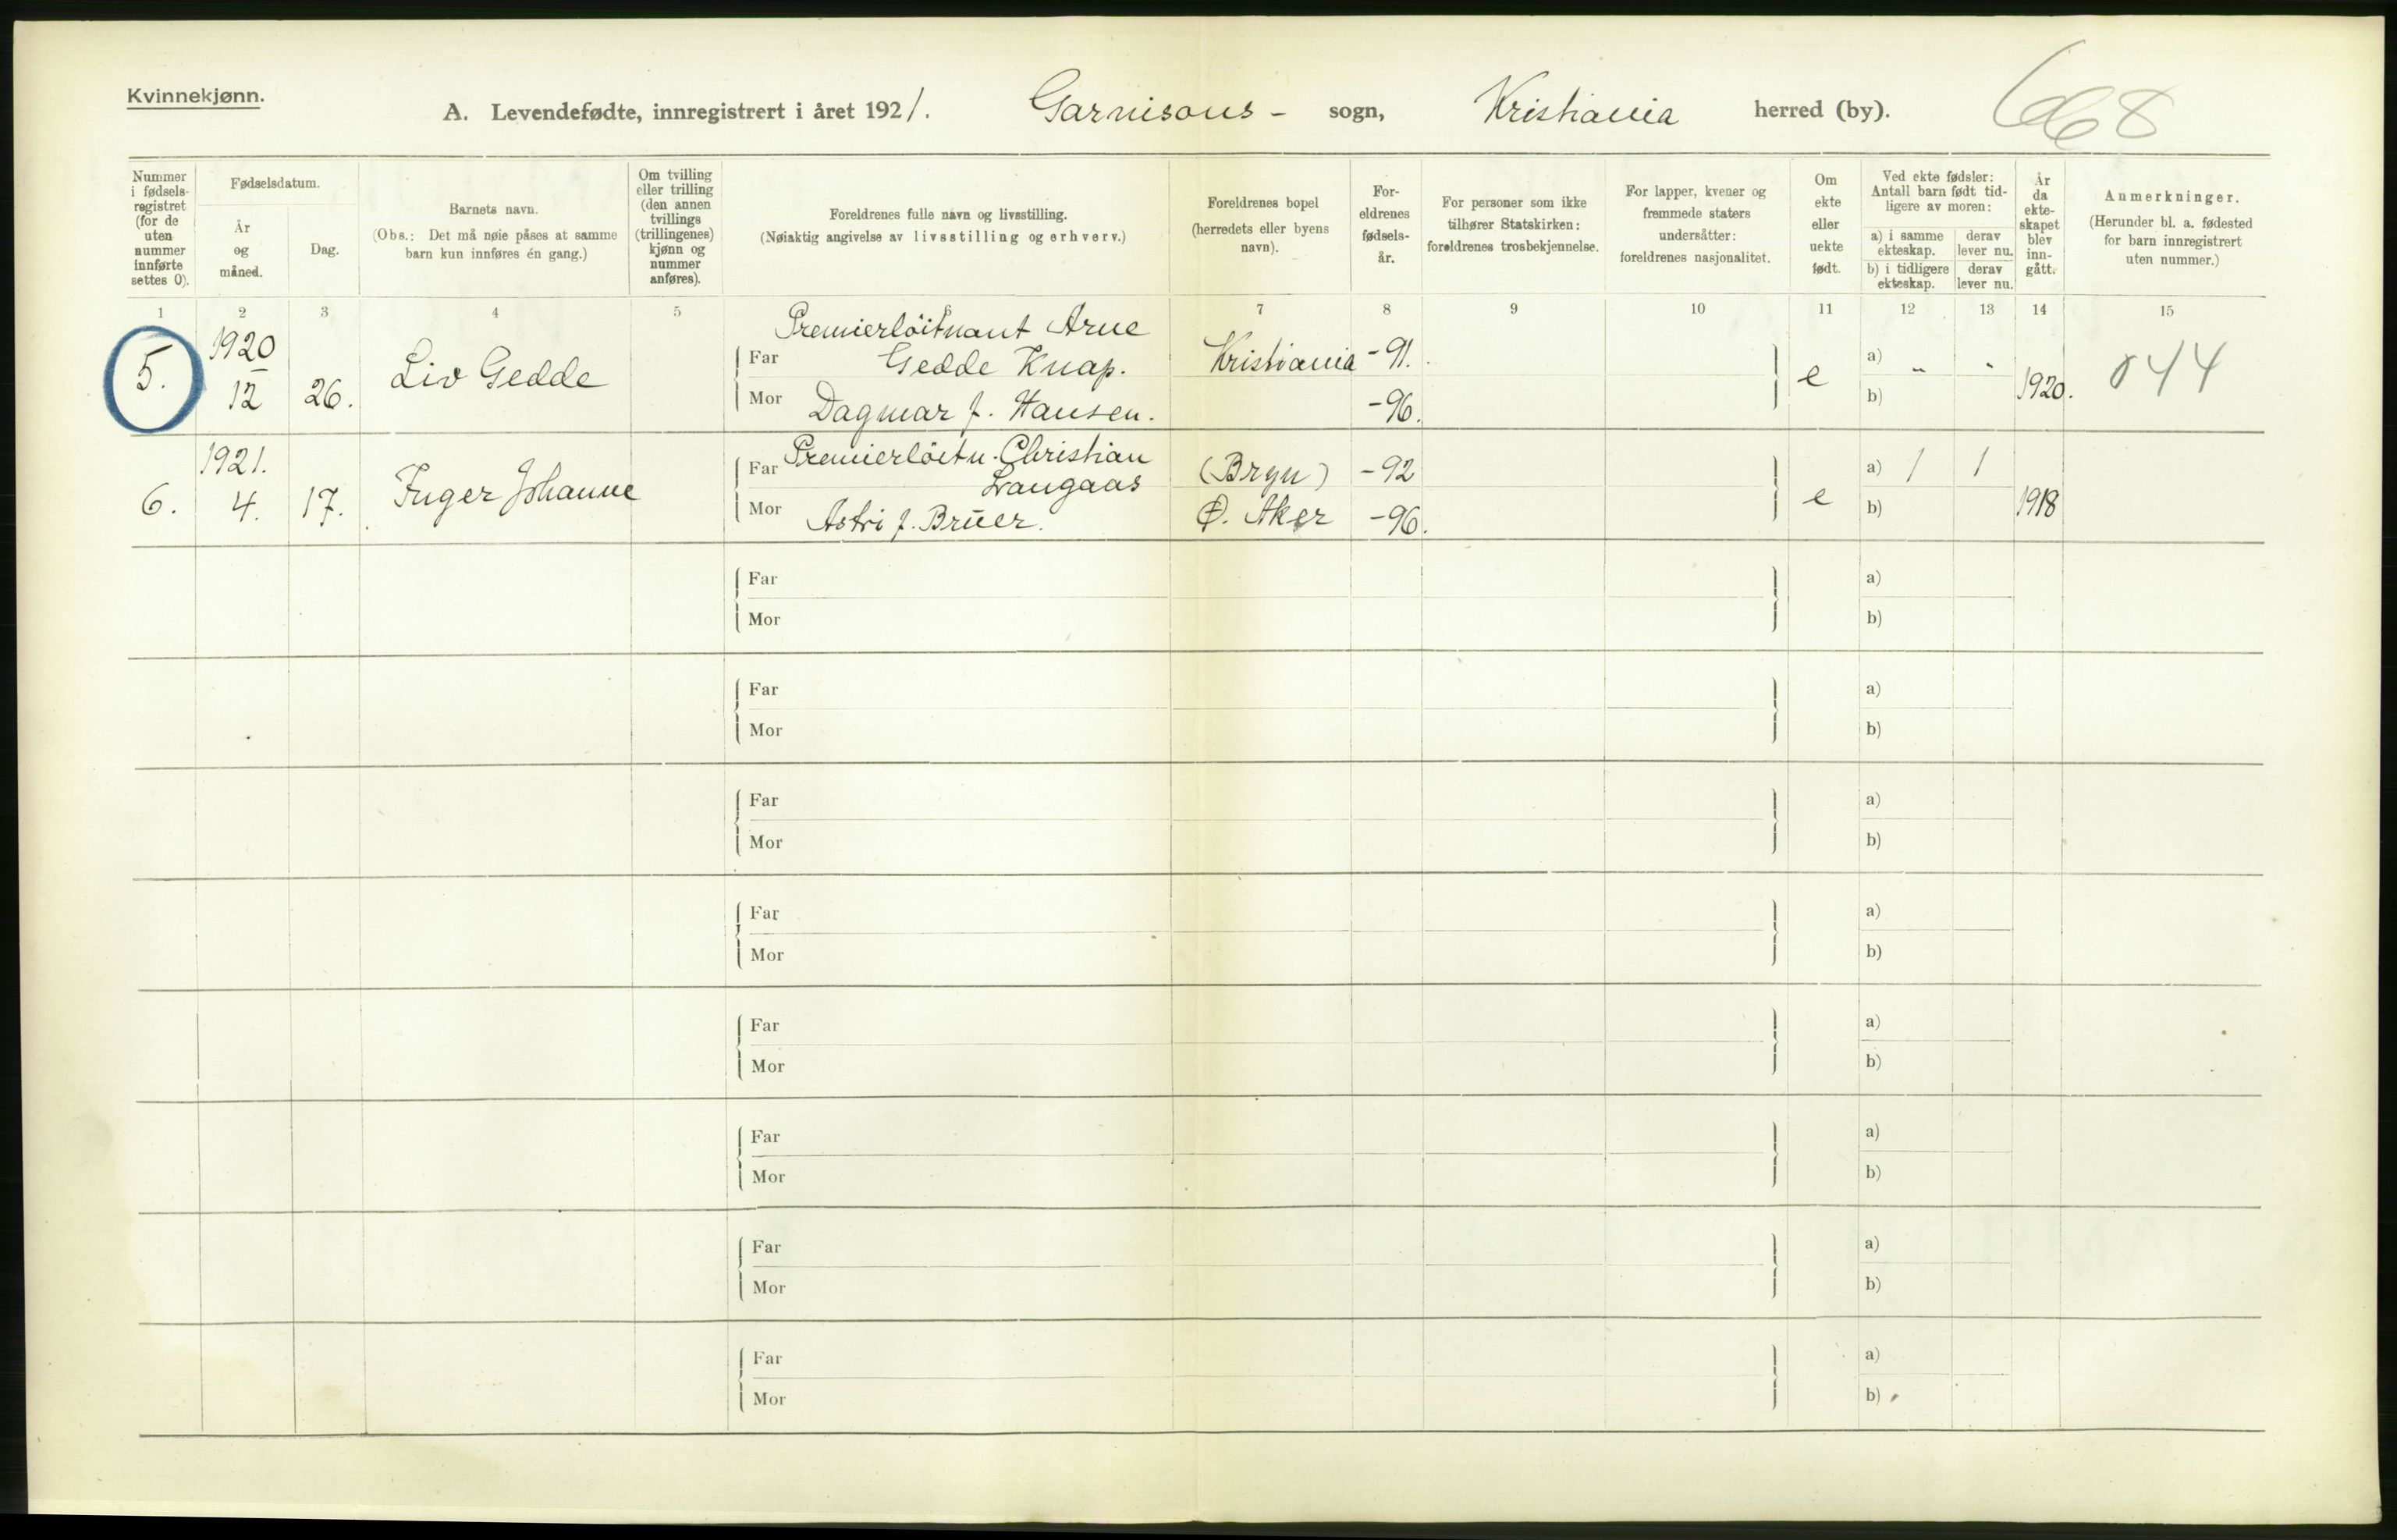 Kvinnekjønn.
A. Levendefødte, innregistrert i året 1921. Garnisons- sogn, Kristiania herred (by). 668
Nummer i fødsels-registret (for de uten nummer innførte settes 0).
Fødselsdatum.
År og måned.
Dag.
Barnets navn.
(Obs.: Det må nøie påses at samme barn kun innføres én gang.)
Om tvilling eller trilling (den annen tvillings (trillingenes) kjønn og nummer anføres).
Foreldrenes fulle navn og livsstilling.
(Nøiaktig angivelse av livsstilling og erhverv.)
Foreldrenes bopel (herredets eller byens navn).
For-eldrenes fødsels-år.
For personer som ikke tilhører Statskirken: foreldrenes trosbekjennelse.
For lapper, kvener og fremmede staters undersåtter: foreldrenes nasjonalitet.
Om ekte eller uekte født.
Ved ekte fødsler: Antall barn født tid-ligere av moren:
a) i samme ekteskap.
derav lever nu.
b) i tidligere ekteskap.
derav lever nu.
År da ekte-skapet blev inn-gått.
Anmerkninger.
(Herunder bl. a. fødested for barn innregistrert uten nummer.)
1 2 3 4 5 7 8 9 10 11 12 13 14 15
5. 1920 12 26. Liv Gedde
Premierløitnant Arne
Far Gedde Knap. Kristiania -91.
Mor Dagmar f. Hansen. -96.
e a) " " b) 1920. 044
6. 1921. 4. 17. Inger Johanne
Far Premierløitn. Christian
Langaas (Bryn) -92
Mor Astri f. Brüer. Ø. Aker -96.
e a) 1 1 b) 1918
Far a)
Mor b)
Far a)
Mor b)
Far a)
Mor b)
Far a)
Mor b)
Far a)
Mor b)
Far a)
Mor b)
Far a)
Mor b)
Far a)
Mor b)